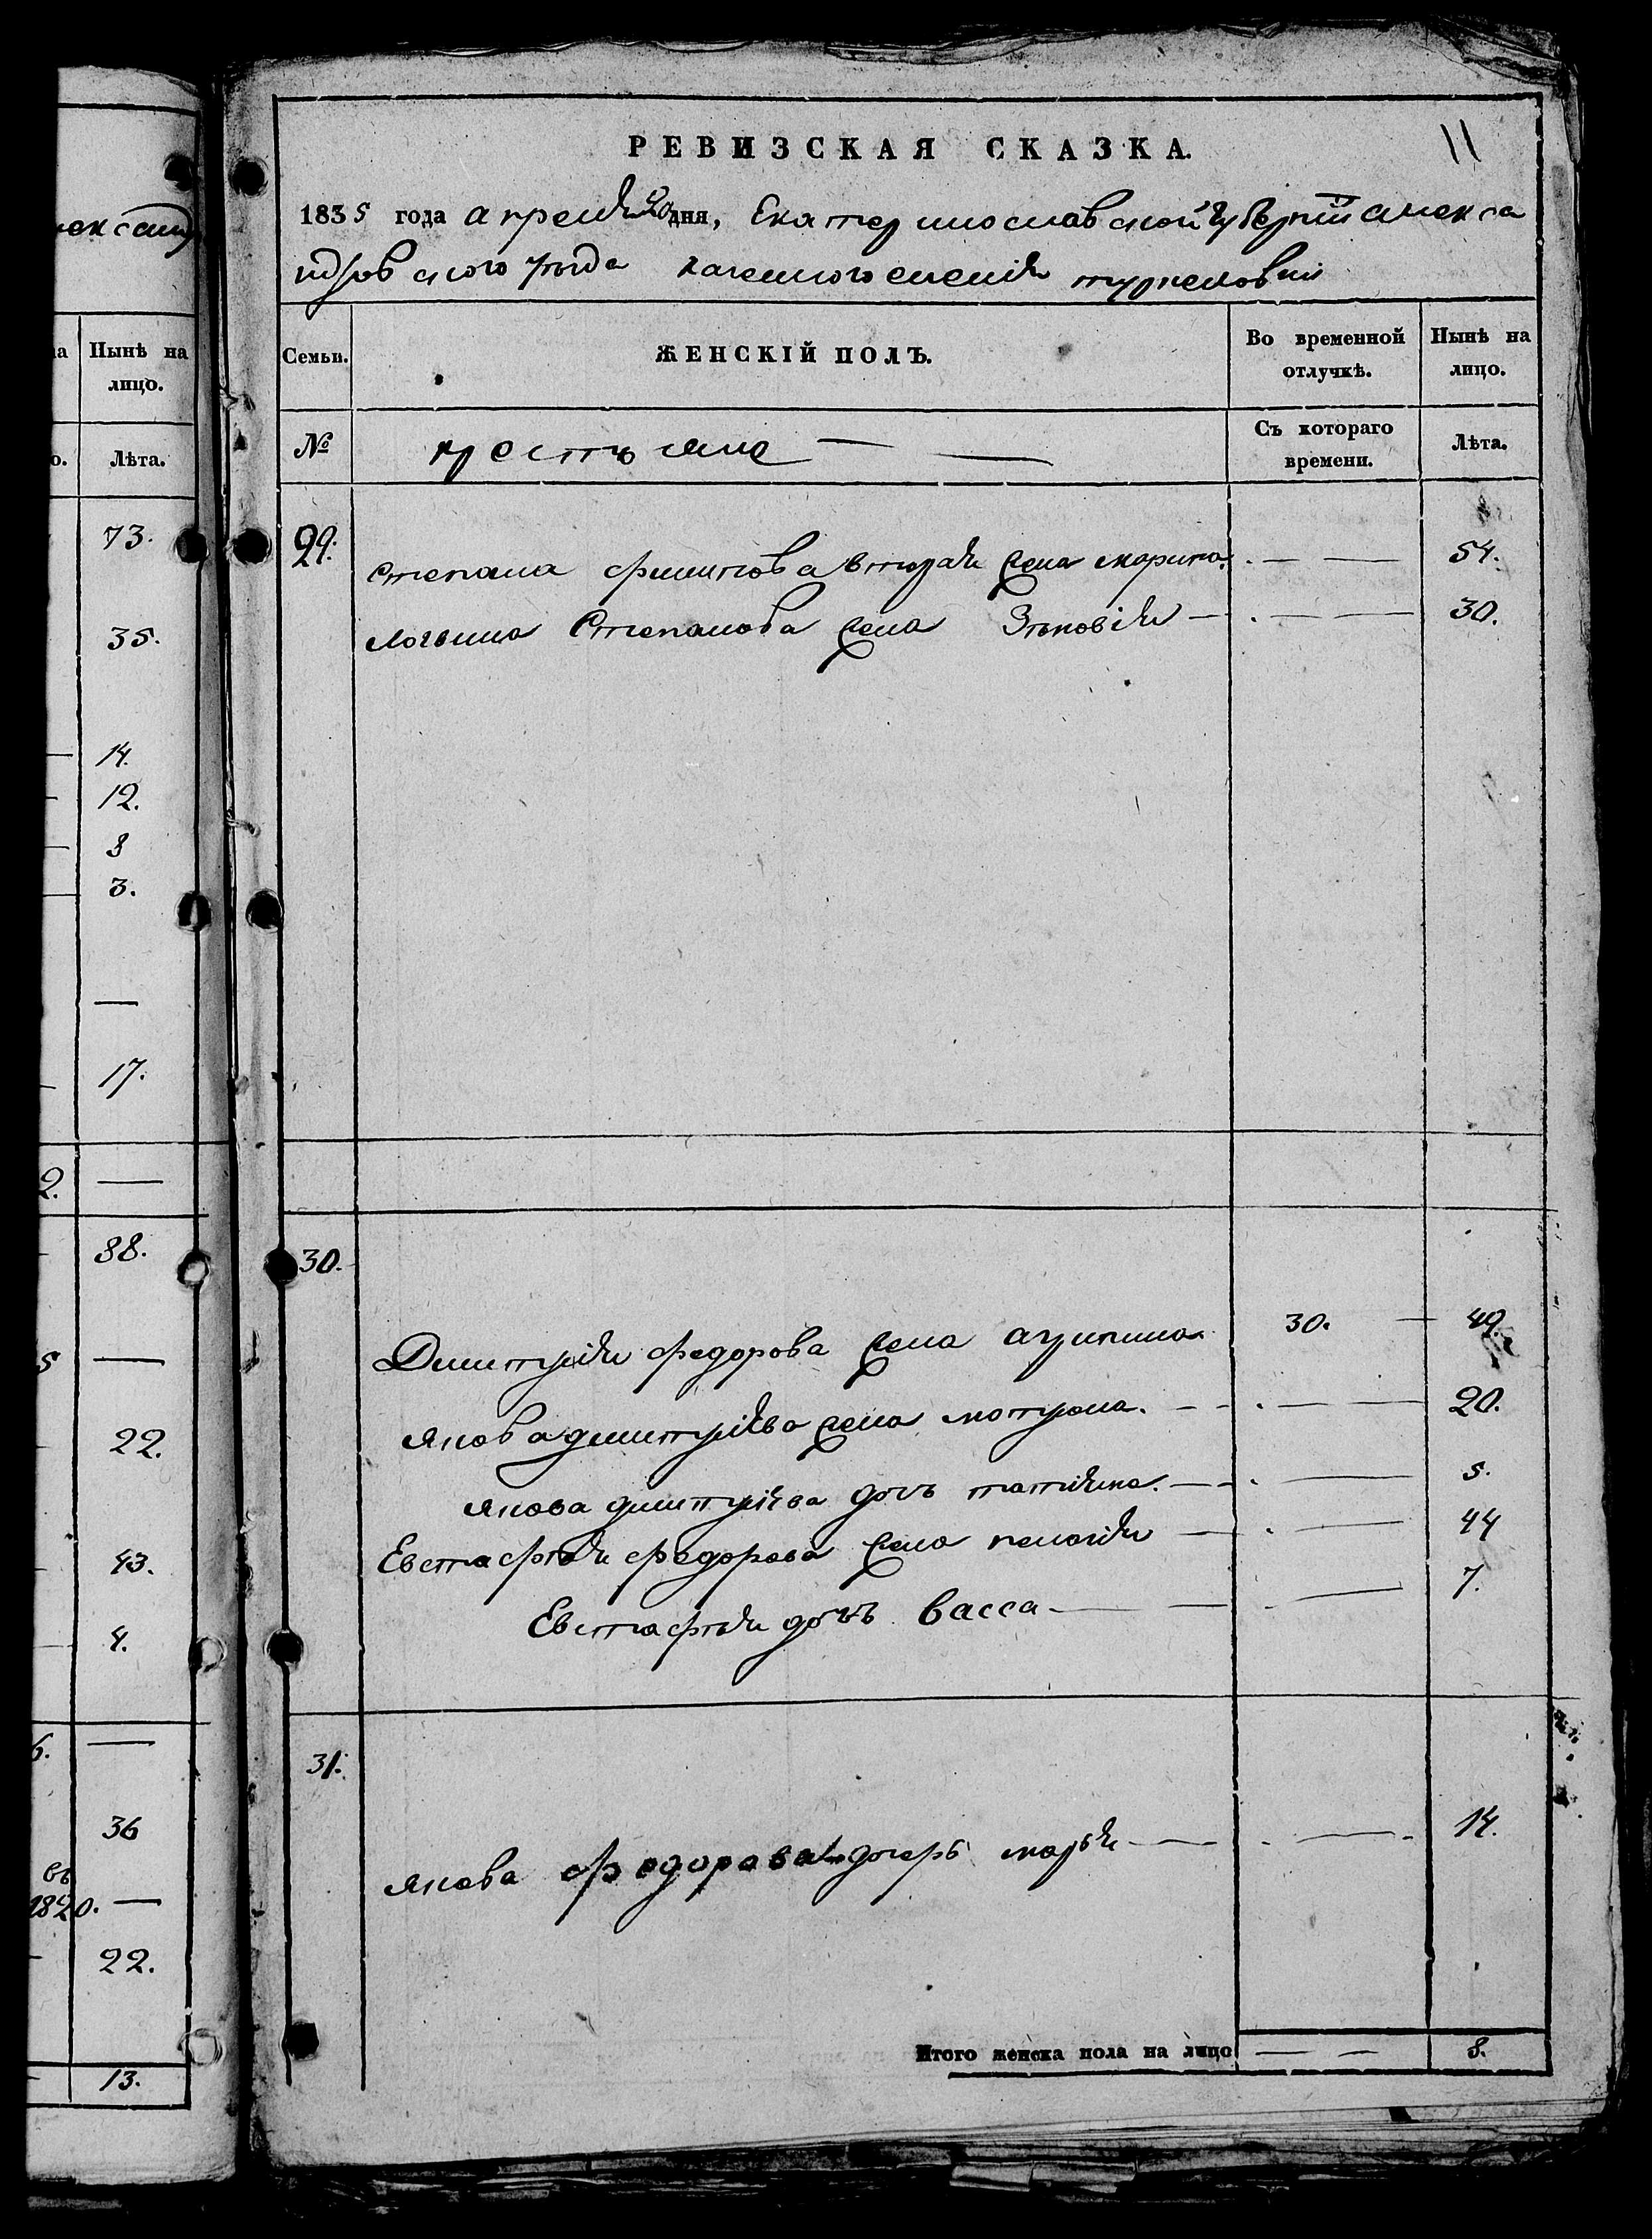 нександ
Нынѣ на
лицо.
Лѣта.
73.
35.
14.
12.
8
3.
17.
2.
38.
5
22.
43.
4.
6.
36
въ
1820.
22.
13.
11
РЕВИЗСКАЯ СКАЗКА.
1835 года апреля дня, Екатеринославской губерніи алекса
ндровского уѣзда казенного селенія туркеновки
Семьи.
ЖЕНСКІЙ ПОЛЪ.
Во временной
отлучкѣ.
Нынѣ на
лицо.
№
крестъяне
Съ котораго
времени.
Лѣта.
29.
степана филипова вторая жена марина. 54.
логвина Степанова жена Зѣновія 30.
30.
Дмитрія федорова жена агрипина 30. 49
якова дмитріева жена мотрона. 20.
якова дмитріева дочь татіяна. 5.
Евстафѣя федорова жена пелагія 44
Евстафѣя дочь васса 7.
31.
якова федорова дочерь марья 14.
Итого женска пола на лицо 8.